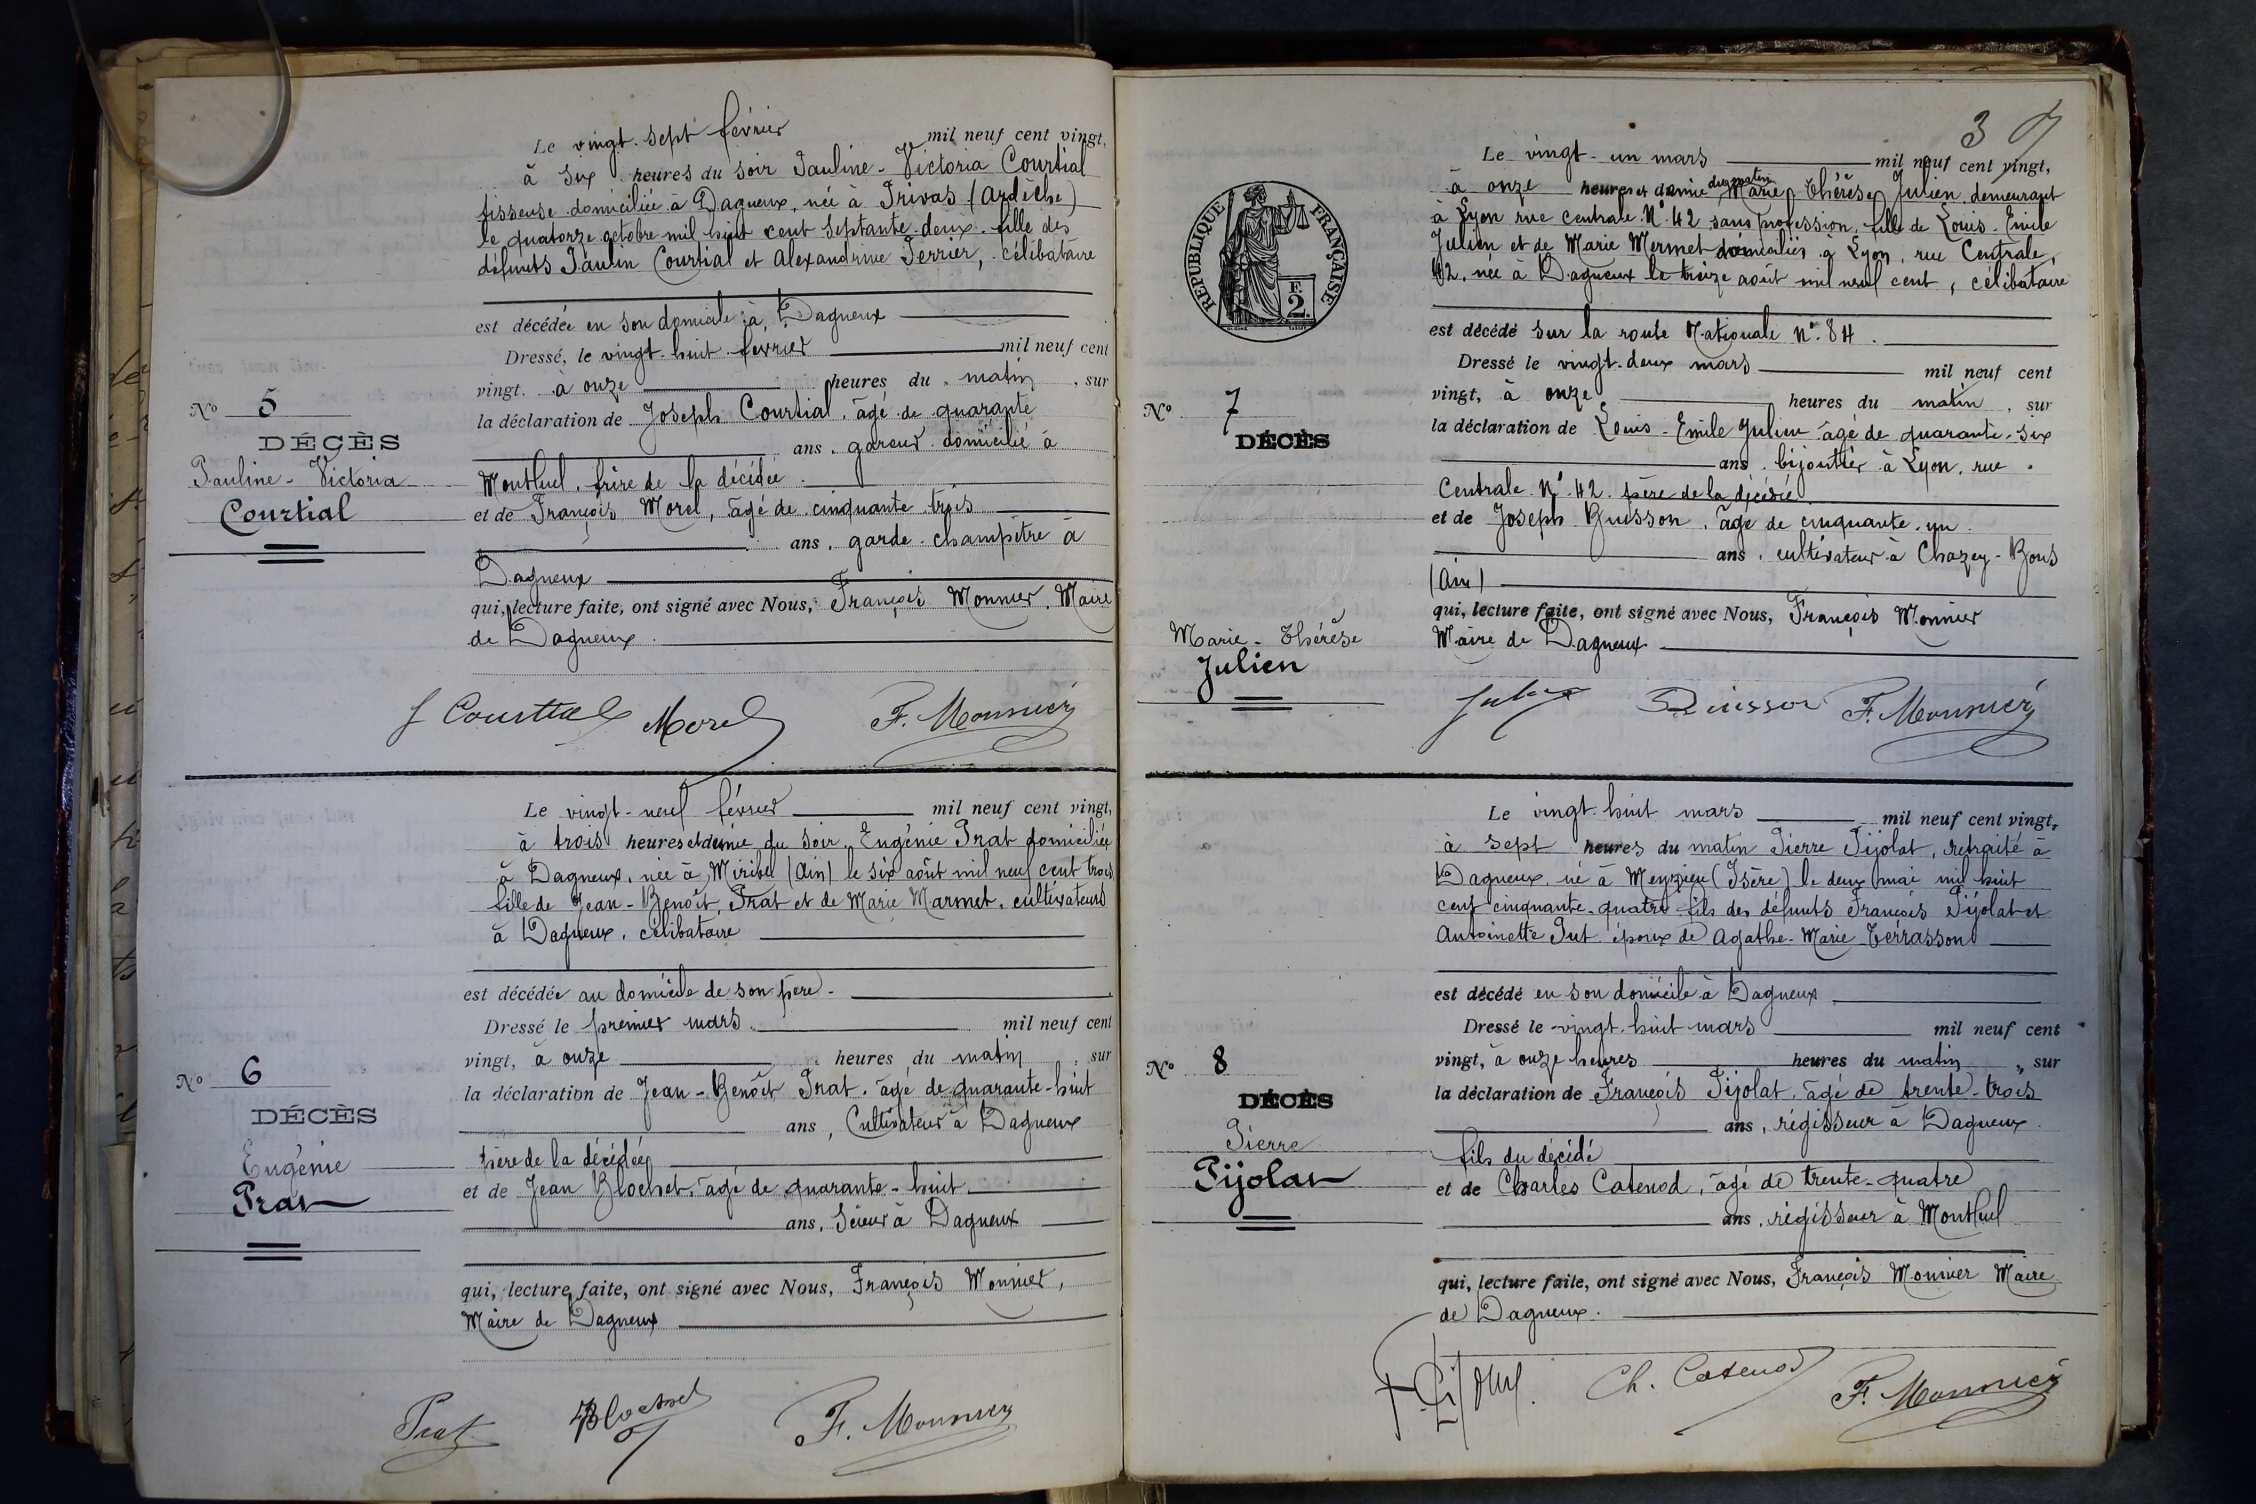 Le vingt-sept février mil neuf cent vingt,
à six heures du soir Pauline-Victoria Courtial
tisseuse domiciliée à Dagneux, née à Privas (Ardèche)
le quatorze octobre mil huit cent septante-deux. fille des
défunts Paulin Courtial et Alexandrine Perrier, célibataire
est décédée en son domicile à Dagneux
Dressé, le vingt-huit février mil neuf cent
vingt. à onze heures du matin, sur
la déclaration de Joseph Courtial, âgé de quarante
ans, gareur domicilié à
Montluel, frère de la décédée
et de François Morel, âgé de cinquante trois
ans, garde-champêtre à
Dagneux
qui, lecture faite, ont signé avec Nous, François Monnier, Maire
de Dagneux.
Nº 5
DÉCÈS
Pauline-Victoria
Courtial
J Courtial Morel F. Monnier
Le vingt-neuf février mil neuf cent vingt,
à trois heures et demie du soir, Eugénie Prat domiciliée
à Dagneux, née à Miribel (Ain) le six août mil neuf cent trois
fille de Jean-Benoît Prat et de Marie Marmet, cultivateurs
à Dagneux, célibataire
est décédée au domicile de son père
Dressé le premier mars mil neuf cent
vingt, à onze heures du matin, sur
la déclaration de Jean-Benoît Prat, âgé de quarante-huit
ans, Cultivateur à Dagneux
père de la décédée
et de Jean Blochet, âgé de quarante-huit
ans, Scieur à Dagneux
qui, lecture faite, ont signé avec Nous, François Monnier,
Maire de Dagneux
Nº 6
DÉCÈS
Eugénie
Prat
Prat Blochet F. Monnier
3
RÉPUBLIQUE FRANÇAISE
F.
2.
Le vingt-un mars mil neuf cent vingt,
à onze heures et demie du matin Marie Thérèse Julien demeurant
à Lyon rue centrale Nº 42 sans profession, fille de Louis-Emile
Julien et de Marie Mermet domiciliés à Lyon, rue Centrale,
42, née à Dagneux le treize août mil neuf cent, célibataire
est décédé sur la route Nationale Nº 84.
Dressé le vingt-deux mars mil neuf cent
vingt, à onze heures du matin, sur
la déclaration de Louis-Emile Julien âgé de quarante-six
ans, bijoutier à Lyon, rue
Centrale Nº 42. père de la décédée
et de Joseph Buisson, âgé de cinquante-un
ans, cultivateur à Chazey-Bons
(Ain)
qui, lecture faite, ont signé avec Nous, François Monnier
Maire de Dagneux
Nº 7
DÉCÈS
Marie-Thérèse
Julien
Buisson F. Monnier
Le vingt-huit mars mil neuf cent vingt,
à sept heures du matin Pierre Pijolat, retraité à
Dagneux, né à Meyzieu (Isère) le deux mai mil huit
cent cinquante-quatre fils des défunts François Pijolat et
Antoinette Put époux de Agathe-Marie Terrasson
est décédé en son domicile à Dagneux
Dressé le vingt-huit mars mil neuf cent
vingt, à onze heures heures du matin, sur
la déclaration de François Pijolat, âgé de trente-trois
ans, régisseur à Dagneux
fils du décédé
et de Charles Catenod, âgé de trente-quatre
ans, régisseur à Montluel
qui, lecture faite, ont signé avec Nous, François Monnier Maire
de Dagneux.
Nº 8
DÉCÈS
Pierre
Pijolat
Ch. Catenod F. Monnier